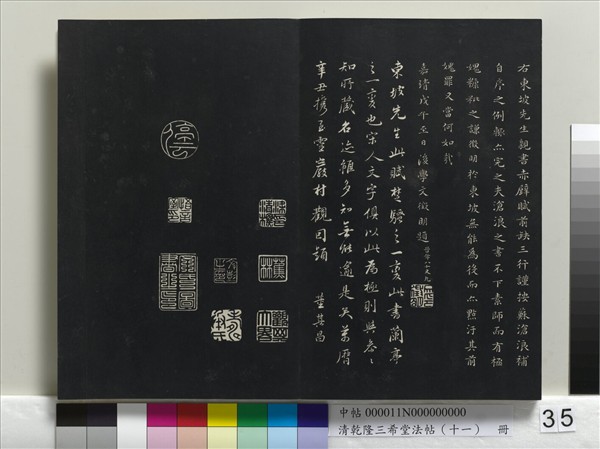 右東坡先生親書赤壁賦前缺三行謹按蘇滄浪補
自序之例輒亦完之夫滄浪之書不下素師而有極
愧糠粃之謙徵明於東坡無能為役而亦點汙其前
愧罪又當何如哉
嘉靖戊午至日後學文徵明題時年八十又九
東坡先生此賦楚騷之一變此書蘭亭
之一變也宋人文字俱以此為極則與參
知所藏名迹雖多知無能逾是矣萬曆
辛丑攜至靈巖村觀因題 董其昌
停雲
中帖 000011N000000000
清乾隆三希堂法帖（十一） 冊
35